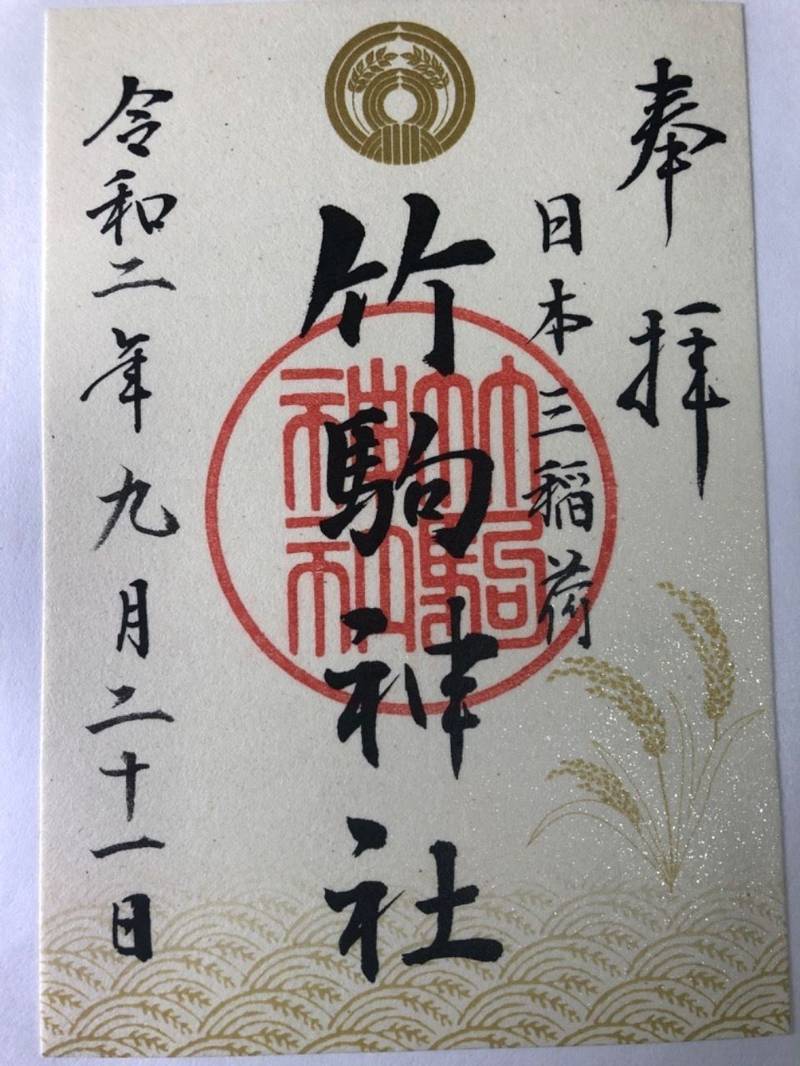 奉拝
日本三稲荷
竹駒神社
竹駒
神社
令和二年九月二十一日